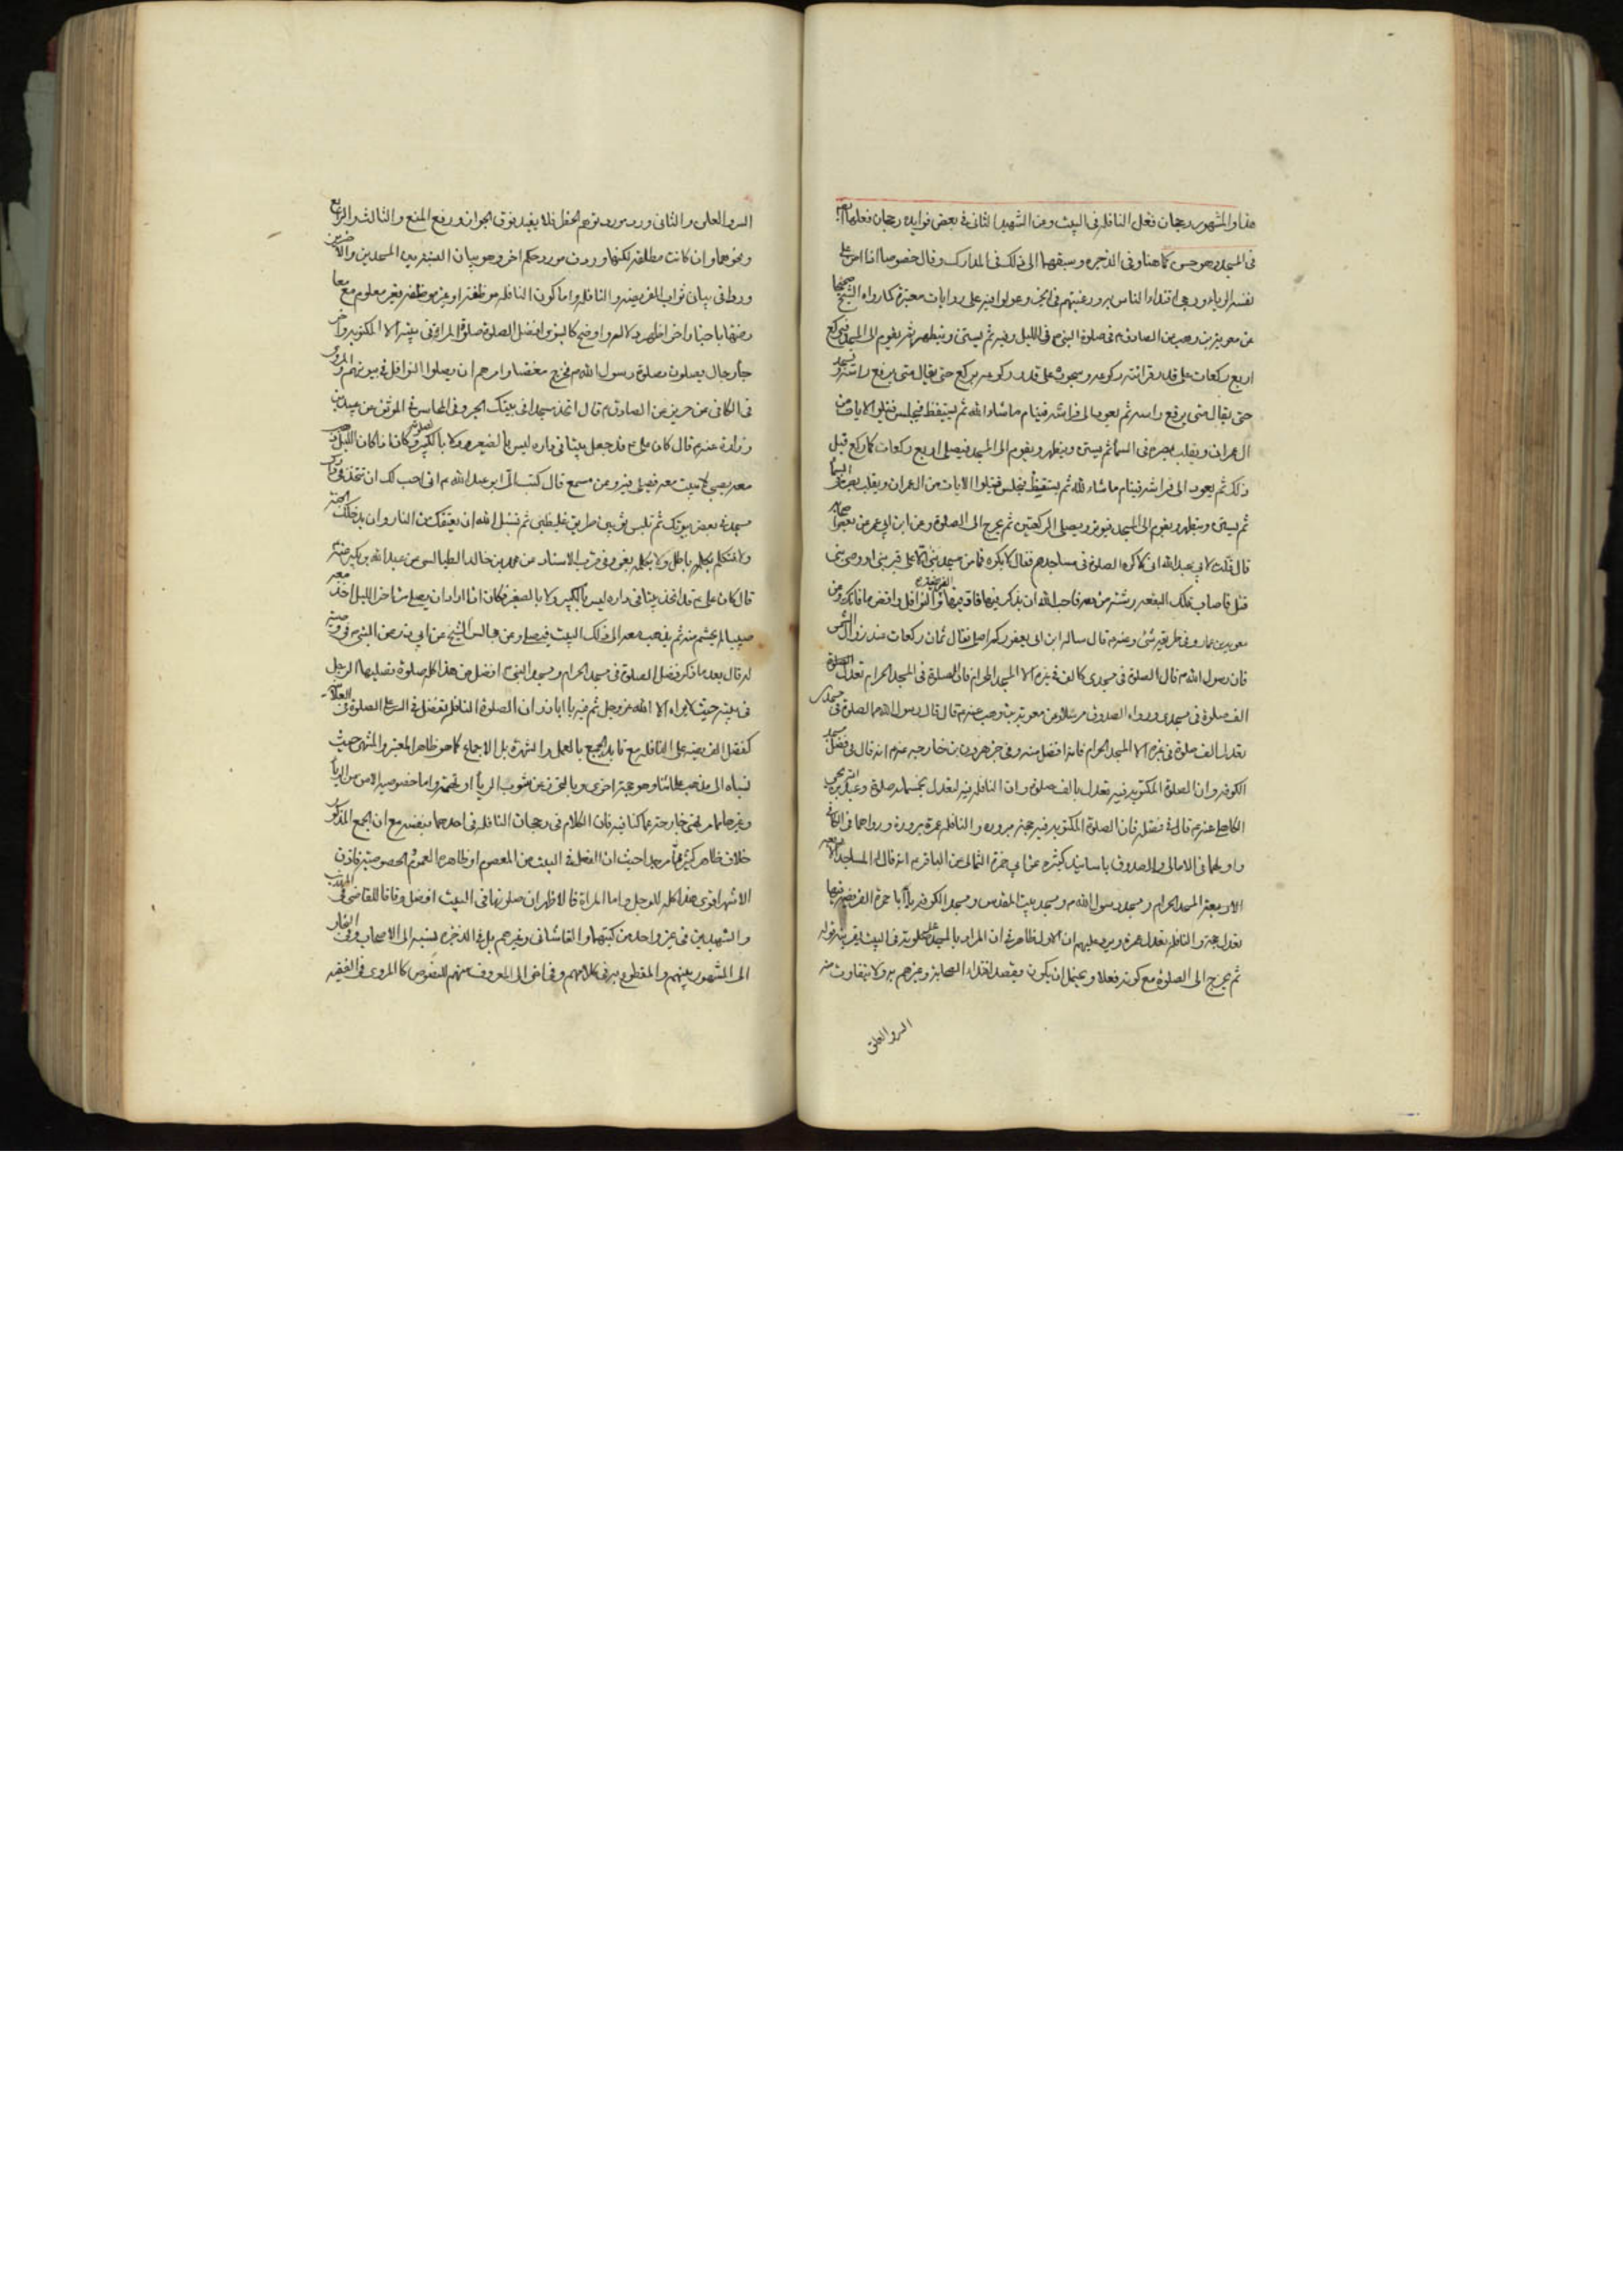 هذا والمشهور رجحان فعل النافلة في البيت وعن الشهيد الثاني في بعض فوايده رجحان فعلها
في المسجد وهو حسن كما هنا وفي الذخيره وسبقهما الى ذلك في المدارك وقال خصوصا اذا امن على
نفسه الرياء ورجى اقتداء الناس به ورغبتهم في الخير وعولوا فيه على روايات معتبرة كما رواه الشيخ صحيحا
عن معوية بن وهب عن الصادق ع في صلوة النبي ص في الليل وفيه ثم يستن ويتطهر ثم يقوم الى المسجد فيركع
اربع ركعات على قدر قرائته ركوعه وسجوده على قدر ركوعه يركع حتى يقال متى يرفع راسه ويسجد
حتى يقال متى يرفع راسه ثم يعود الى فراشه فينام ما شاء الله ثم يستيقظ فيجلس فيتلو الايات من
ال عمران ويقلب بصره في السماء ثم يستن ويتطهر ويقوم الى المسجد فيصلي اربع ركعات كما ركع قبل
ذلك ثم يعود الى فراشه فينام ما شاء الله ثم يستيقظ فيجلس فيتلوا الايات من ال عمران ويقلب بصره في السماء
ثم يستن ويتطهر ويقوم الى المسجد فيوتر ويصلي الركعتين ثم يخرج الى الصلوة وعن ابن ابي عمير عن بعض اصحابه
قال قلت لابي عبد الله اني لاكره الصلوة في مساجدهم فقال لا تكره فما من مسجد بني الا على قبر نبي او وصي نبي
قتل فاصاب تلك البقعه رشة من دمه فاحب الله ان يذكر فيها فاد فيها الفريضة والنوافل واقض ما فاتك وعن
معوية بن عمار وفي طريقه شئ وعنه ع قال ساله ابن ابي يعفور كم اصلي فقال ثمان ركعات عند زوال الشمس
فان رسول الله ص قال الصلوة في مسجدي كالف في غيره الا المسجد الحرام فان الصلوة في المسجد الحرام تعدل
الف صلوة في مسجدي ورواه الصدوق مرسلا وعن معوية بن وهب عنه ع قال قال رسول الله ص الصلوة في مسجدي
تعدل الف صلوة في غيره الا المسجد الحرام فانه افضل منه وفي خبر هرون بن خارجه عنه ع انه قال في فضل مسجد
الكوفه وان الصلوة المكتوبه فيه تعدل بالف صلوة وان النافله فيه لتعدل بخمسمائه صلوة وعبد الله بن يحيى
الكاهلي عنه ع قال في فضله فان الصلوة المكتوبه فيه حجة مبروره والنافله عمرة مبرورة ورواهما في الكافي
واولهما في الامالي والصدوق باسانيد كثيره عن ابي حمزة الثمالي عن الباقر ع انه قال له المساجد الاربعه
المسجد الحرام ومسجد رسول الله ص ومسجد بيت المقدس ومسجد الكوفه يا ابا حمزة الفريضه فيها
تعدل حجة والنافلة تعدل عمرة ويرد عليهم ان الاول ظاهر في ان المراد بالمسجد مصلاه في البيت بقرينة قوله
ثم يخرج الى الصلوة مع كونه فعلا ويحتمل ان يكون بقصد اقتداء الصحابة وغيرهم به ولا يتفاوت منه
السر والعلن
السر والعلن والثاني ورد مورد توهم الحظر فلا يفيد فوق الجواز ورفع المنع والثالث والرابع
ونحوهما وان كانت مطلقه لكنها وردت مورد حكم اخر وهو بيان النسبة بين المسجدين والاخيرين
وردا في بيان ثواب الفريضه والنافله واما كون النافله موظفة او غير موظفة فغير معلوم مع معا
رضتها باحبار اخر اظهر دلالة واوضح كالنبوي افضل الصلوة صلوة المرء في بيته الا المكتوبه واخر
جاء رجال يصلون بصلوة رسول الله ص فخرج مغضبا وامرهم ان يصلوا النوافل في بيوتهم والمروي
في الكافي عن حريز عن الصادق ع قال اتخذ مسجدا في بيتك الخبر وفي المحاسن في الموثق عن عبيد بن
زرارة عنه ع قال كان علي ع قد جعل بيتا في داره ليس بالصغير ولا بالكبير لصلوته وكان اذا كان الليل ذهب
معه بصبي لا يبيت معه فيصلي فيه وعن مسمع قال كتب الي ابو عبد الله ع اني احب لك ان تتخذ في دارك
مسجدا في بعض بيوتك ثم تلبس ثوبين طمرين غليظين ثم تسئل الله ان يعتقك من النار وان يدخلك الجنة
ولا تتكلم بكلمه باطل ولا بكلمه بغي وفي قرب الاسناد عن محمد بن خالد الطيالسي عن عبد الله بن بكير عنه ع
قال كان علي ع قد اتخذ بيتا في داره ليس بالكبير ولا بالصغير فكان اذا اراد ان يصلي من اخر الليل اخذ معه
صبيا لا يحتشم منه ثم يذهب معه الى ذلك البيت فيصلي وعن مجالس الشيخ عن ابي ذر عن النبي ص في وصيته
له قال بعد ما ذكر فضل الصلوة في مسجد الحرام ومسجد النبي ص افضل من هذا كله صلوة يصليها الرجل
في بيته حيث لا يراه الا الله عز وجل ثم فيه يا اباذر ان الصلوة النافلة تفضل في السر على الصلوة في العلانية
كفضل الفريضه على النافله مع تايد الجميع بالعمل والشهرة بل الاجماع كما هو ظاهر المعتبر والمنتهى حيث
نسباه الى مذهب علمائنا وهو حجة اخرى وبالتحرز عن مشوب الرياء او تهمته واما خصوصية الامن من الرياء
وغيرها مما مر فهي خارجة عما كنا فيه فان الكلام في رجحان النافلة في احدهما بنفسه مع ان الجمع المذكور
خلاف ظاهر كثير مما مر جدا حيث ان الفعل في البيت من المعصوم او ظاهره العموم لا لخصوصيته فاذن
الاشهر اقوى هذا كله للرجل واما المراة فالاظهر ان صلوتها في البيت افضل وفاقا للقاضي في المهذب
والشهيدين في غير واحد من كتبهما والقاشاني وغيرهم بل في الذخيره نسبه الى الاصحاب وفي البحار
الى المشهور بينهم والمقطوع به في كلامهم وفي اخرى الى المعروف منهم للنصوص كالمروي في الفقيه